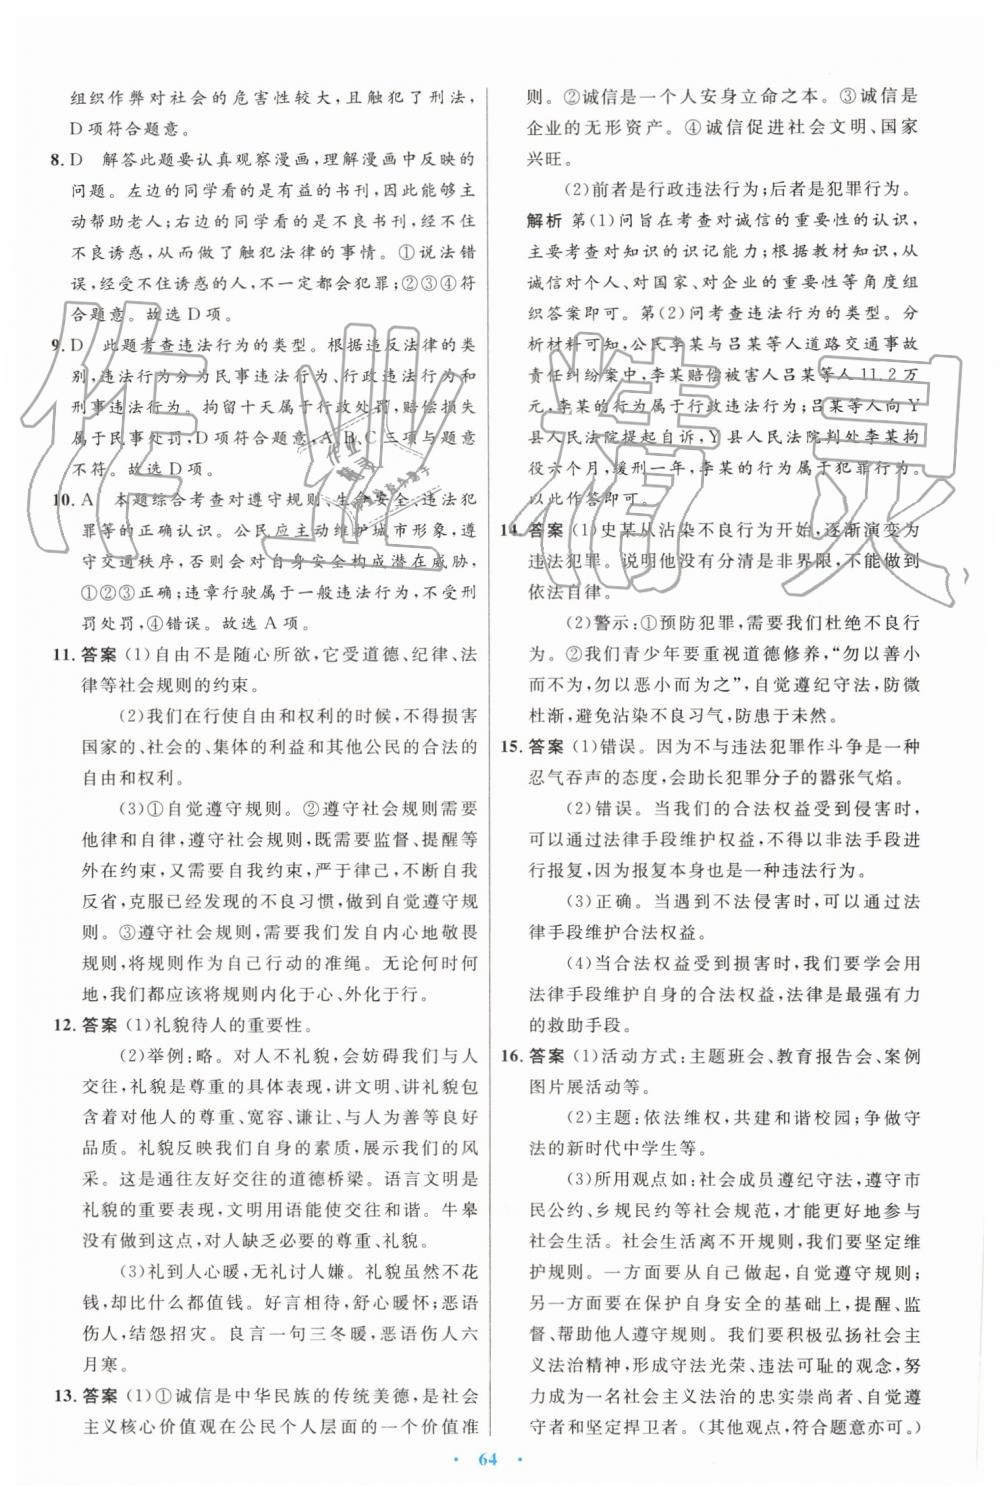 组织作弊对社会的危害性较大,且触犯了刑法,
D项符合题意。
8. D 解答此题要认真观察漫画,理解漫画中反映的
问题。左边的同学看的是有益的书刊,因此能够主
动帮助老人;右边的同学看的是不良书刊,经不住
不良诱惑,从而做了触犯法律的事情。①说法错
误,经受不住诱惑的人,不一定都会犯罪;②③④符
合题意。故选D项。
9. D 此题考查违法行为的类型。根据违反法律的类
别,违法行为分为民事违法行为、行政违法行为和
刑事违法行为。拘留十天属于行政处罚,赔偿损失
属于民事处罚,D项符合题意,A、B、C三项与题意
不符。故选D项。
10. A 本题综合考查对遵守规则、生命安全、违法犯
罪等的正确认识。公民应主动维护城市形象,遵
守交通秩序,否则会对自身安全构成潜在威胁,
①②③正确;违章行驶属于一般违法行为,不受刑
罚处罚,④错误。故选A项。
11. 答案 (1)自由不是随心所欲,它受道德、纪律、法
律等社会规则的约束。
(2)我们在行使自由和权利的时候,不得损害
国家的、社会的、集体的利益和其他公民的合法的
自由和权利。
(3)①自觉遵守规则。②遵守社会规则需要
他律和自律,遵守社会规则,需要监督、提醒等
外在约束,又需要自我约束,严于律己,不断自我
反省,克服已经发现的不良习惯,做到自觉遵守规
则。③遵守社会规则,需要我们发自内心地敬畏
规则,将规则作为自己行动的准绳。无论何时何
地,我们都应该将规则内化于心、外化于行。
12. 答案 (1)礼貌待人的重要性。
(2)举例:略。对人不礼貌,会妨碍我们与人
交往,礼貌是尊重的具体表现,讲文明、讲礼貌包
含着对他人的尊重、宽容、谦让、与人为善等良好
品质。礼貌反映我们自身的素质,展示我们的风
采。这是通往友好交往的道德桥梁。语言文明是
礼貌的重要表现,文明用语能使交往和谐。牛皋
没有做到这点,对人缺乏必要的尊重、礼貌。
(3)礼到人心暖,无礼讨人嫌。礼貌虽然不花
钱,却比什么都值钱。好言相待,舒心暖怀;恶语
伤人,结怨招灾。良言一句三冬暖,恶语伤人六
月寒。
13. 答案 (1)①诚信是中华民族的传统美德,是社会
主义核心价值观在公民个人层面的一个价值准
则。②诚信是一个人安身立命之本。③诚信是
企业的无形资产。④诚信促进社会文明、国家
兴旺。
(2)前者是行政违法行为;后者是犯罪行为。
解析 第(1)问旨在考查对诚信的重要性的认识,
主要考查对知识的识记能力;根据教材知识,从
诚信对个人、对国家、对企业的重要性等角度组
织答案即可。第(2)问考查违法行为的类型。分
析材料可知,公民李某与吕某等人道路交通事故
责任纠纷案中,李某赔偿被害人吕某等人11.2万
元,李某的行为属于行政违法行为;吕某等人向Y
县人民法院提起自诉,Y县人民法院判处李某拘
役六个月,缓刑一年,李某的行为属于犯罪行为。
以此作答即可。
14. 答案 (1)史某从沾染不良行为开始,逐渐演变为
违法犯罪。说明他没有分清是非界限,不能做到
依法自律。
(2)警示:①预防犯罪,需要我们杜绝不良行
为。②我们青少年要重视道德修养,“勿以善小
而不为,勿以恶小而为之”,自觉遵纪守法,防微
杜渐,避免沾染不良习气,防患于未然。
15. 答案 (1)错误。因为不与违法犯罪作斗争是一种
忍气吞声的态度,会助长犯罪分子的嚣张气焰。
(2)错误。当我们的合法权益受到侵害时,
可以通过法律手段维护权益,不得以非法手段进
行报复,因为报复本身也是一种违法行为。
(3)正确。当遇到不法侵害时,可以通过法
律手段维护合法权益。
(4)当合法权益受到损害时,我们要学会用
法律手段维护自身的合法权益,法律是最强有力
的救助手段。
16. 答案 (1)活动方式:主题班会、教育报告会、案例
图片展活动等。
(2)主题:依法维权,共建和谐校园;争做守
法的新时代中学生等。
(3)所用观点如:社会成员遵纪守法,遵守市
民公约、乡规民约等社会规范,才能更好地参与
社会生活。社会生活离不开规则,我们要坚定维
护规则。一方面要从自己做起,自觉遵守规则;
另一方面要在保护自身安全的基础上,提醒、监
督、帮助他人遵守规则。我们要积极弘扬社会主
义法治精神,形成守法光荣、违法可耻的观念,努
力成为一名社会主义法治的忠实崇尚者、自觉遵
守者和坚定捍卫者。(其他观点,符合题意亦可。)
64
作业精灵